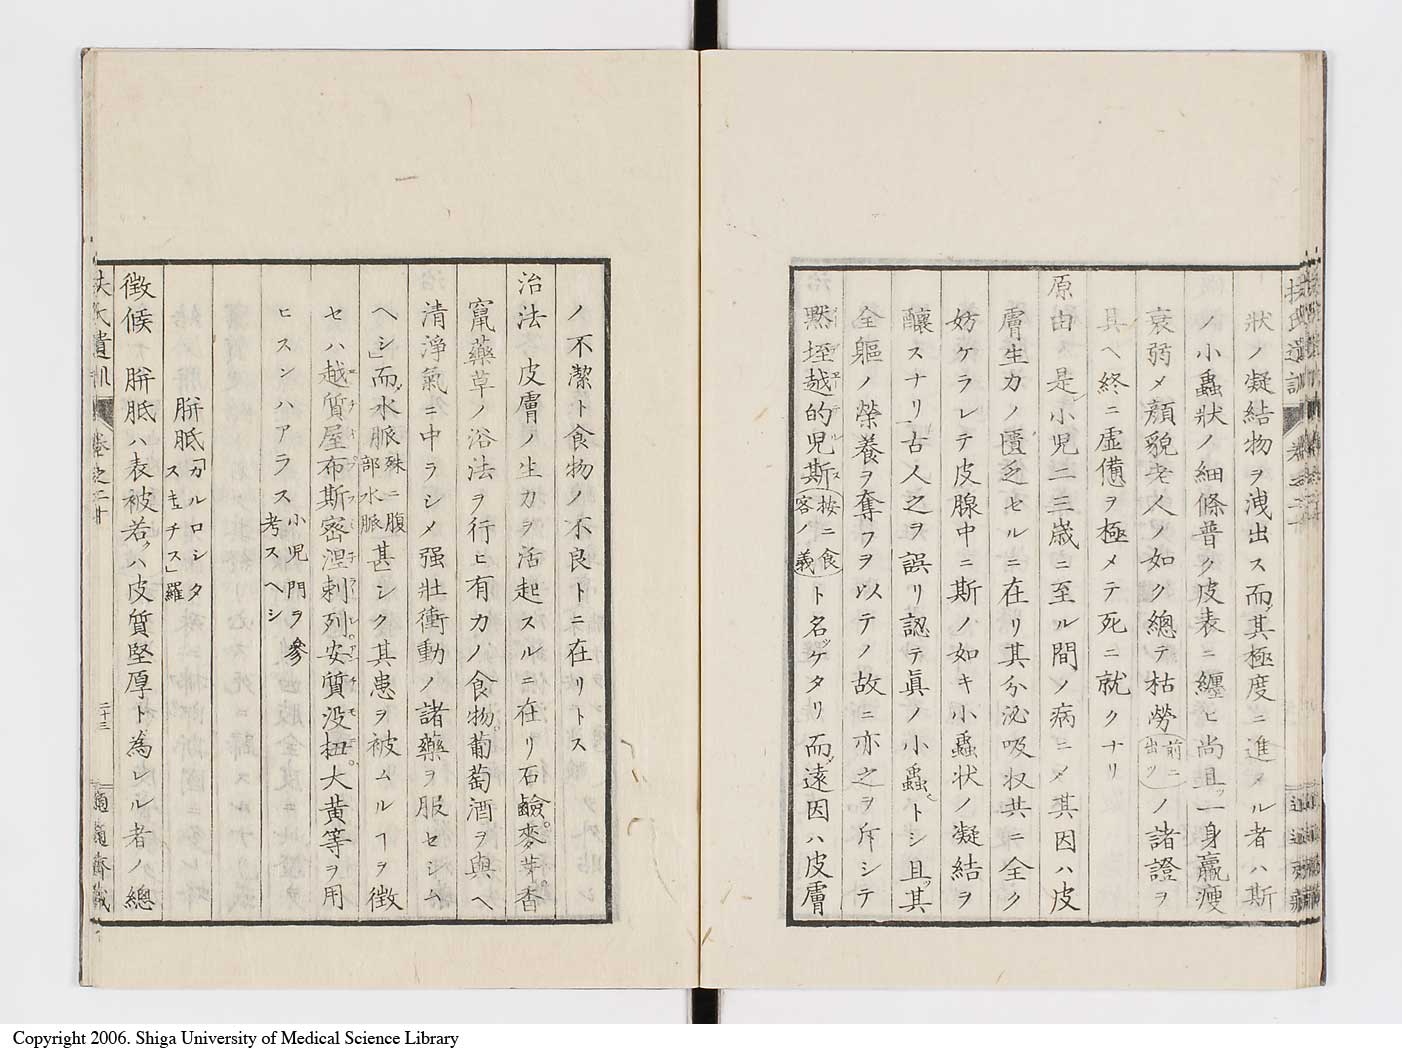 扶氏遺訓
卷之二十
狀ノ凝結物ヲ洩出ス而〆其極度ニ進メル者ハ斯
ノ小蟲狀ノ細條普ク皮表ニ纏ヒ尚且ツ一身羸瘦
衰弱〆顏貌老人ノ如ク總テ枯勞(前ニ出ツ)ノ諸證ヲ
具ヘ終ニ虛憊ヲ極メテ死ニ就クナリ
原由 是レ小児二三歲ニ至ル間ノ病ニ〆其因ハ皮
膚生力ノ匱乏セルニ在リ其分泌吸収共ニ全ク
妨ケラレテ皮腺中ニ斯ノ如キ小蟲狀ノ凝結ヲ
釀スナリ」古人之ヲ誤リ認テ眞ノ小蟲トシ且ツ其
全軀ノ榮養ヲ奪フヲ以テノ故ニ亦之ヲ斥シテ
黙垤越的児斯(按ニ食客ノ義)ト名ツケタリ而〆遠因ハ皮膚
ノ不潔ト食物ノ不良トニ在リトス
治法 皮膚ノ生力ヲ活起スルニ在リ石鹼。麥芽。香
竄藥草ノ浴法ヲ行ヒ有力ノ食物。葡萄酒ヲ與ヘ
清淨氣ニ中ラシメ强壯衝動ノ諸藥ヲ服セシム
ヘシ」而〆水脈(殊ニ腹部水脈)甚シク其患ヲ被ムルヿヲ徵
セハ越質屋布斯密涅剌列。安質没扭。大黄等ヲ用
ヒスンハアラス 小児門ヲ參考スヘシ
胼胝「カルロシタス」羅
徵候 胼胝ハ表被若クハ皮質堅厚ト為レル者ノ總
扶氏遺訓
卷之二十
二十三